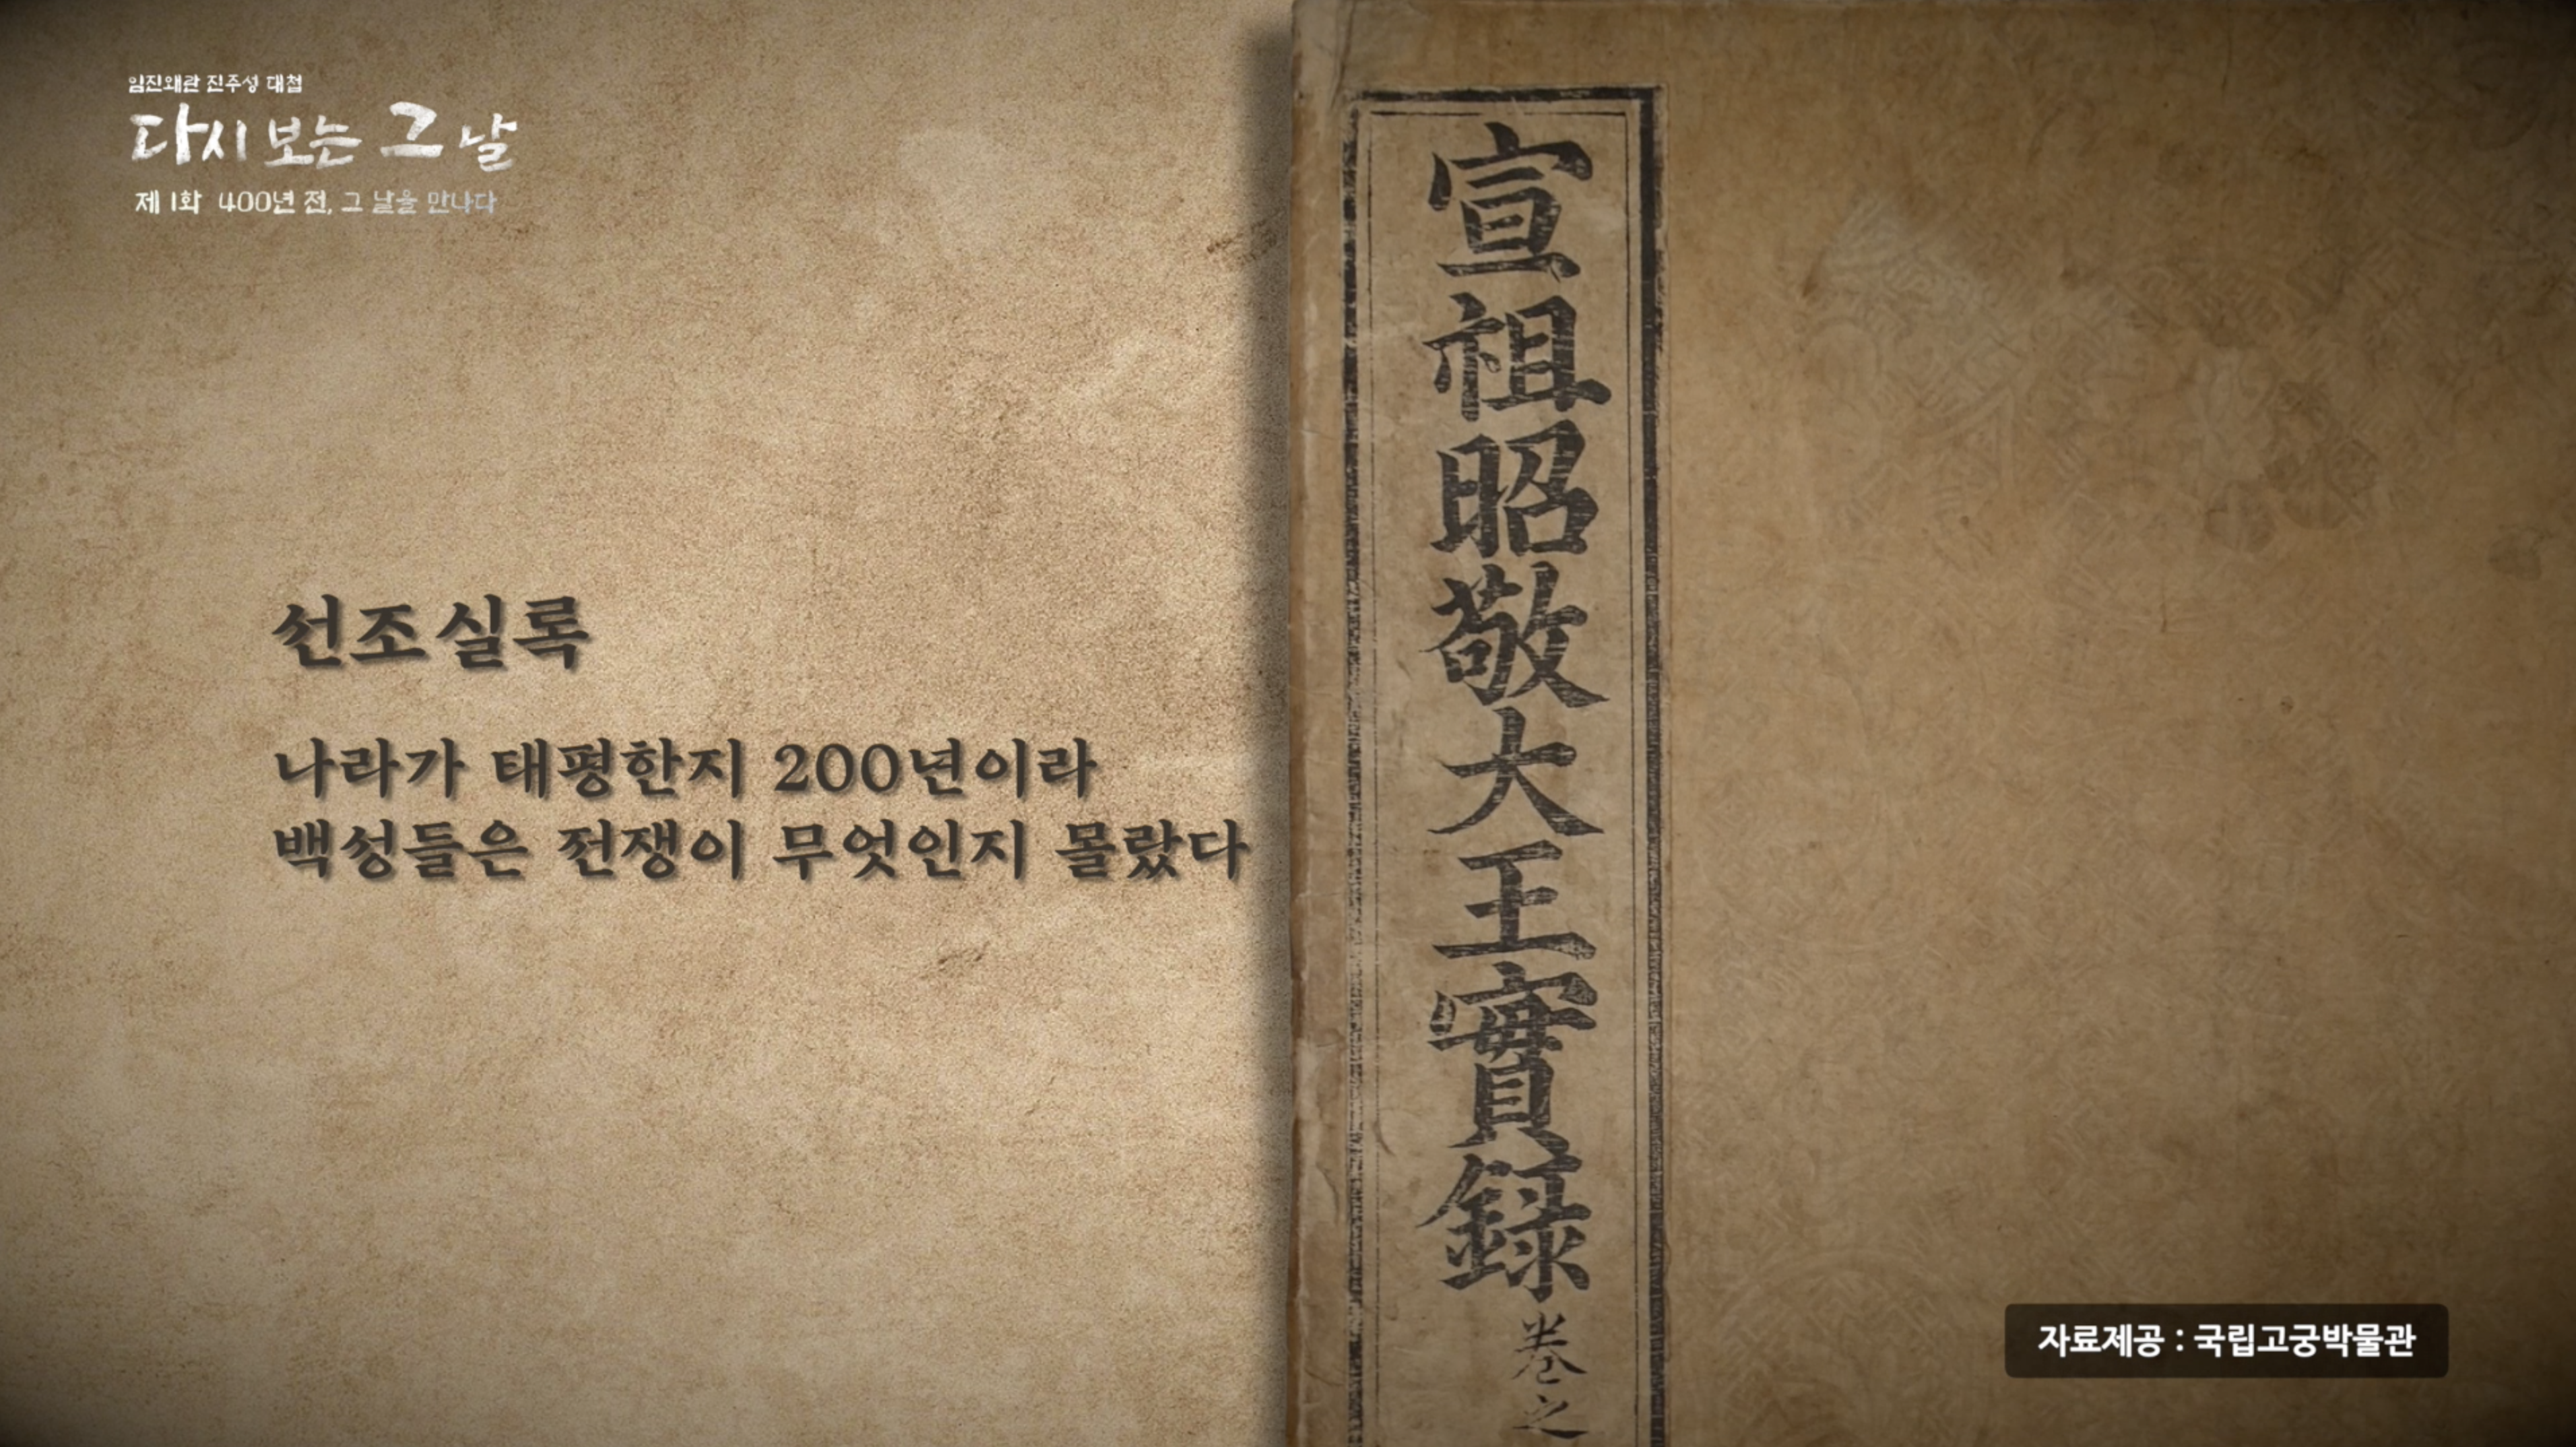 임진왜란 진주성 대첩
다시 보는 그 날
제 1화 400년 전, 그 날을 만나다
선조실록
나라가 태평한지 200년이라
백성들은 전쟁이 무엇인지 몰랐다
宣祖昭敬大王實錄
卷之
자료제공 : 국립고궁박물관